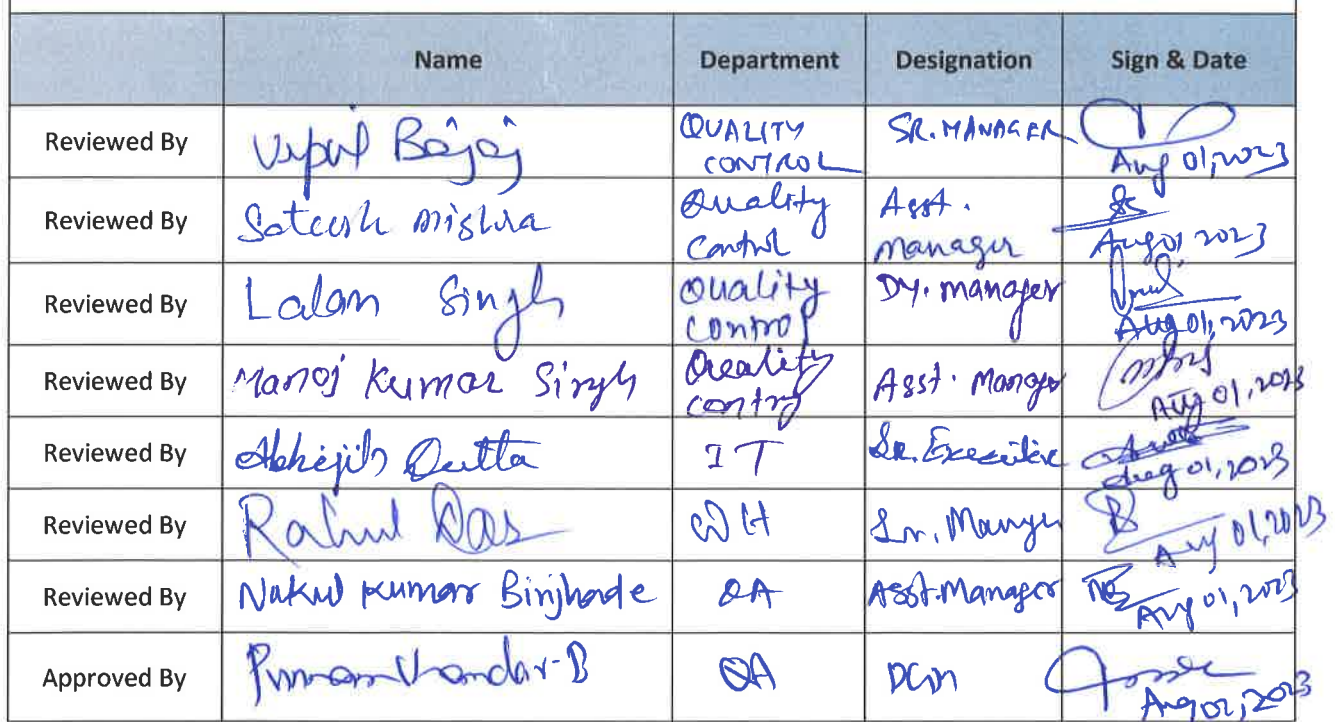 Name Department Designation Sign & Date
Reviewed By Vipul Bajaj QUALITY CONTROL SR. MANAGER Aug 01, 2023
Reviewed By Sateesh Mishra Quality Control Asst. Manager Aug 01 2023
Reviewed By Lalan Singh Quality Control Dy. Manager Aug 01, 2023
Reviewed By Manoj Kumar Singh Quality Control Asst. Manager Aug 01, 2023
Reviewed By Abhijit Dutta IT Sr. Executive Aug 01, 2023
Reviewed By Rahul Das WH Sr. Manager Aug 01, 2023
Reviewed By Nakul Kumar Binjhade QA Asst. Manager Aug 01, 2023
Approved By QA DGM Aug 02, 2023